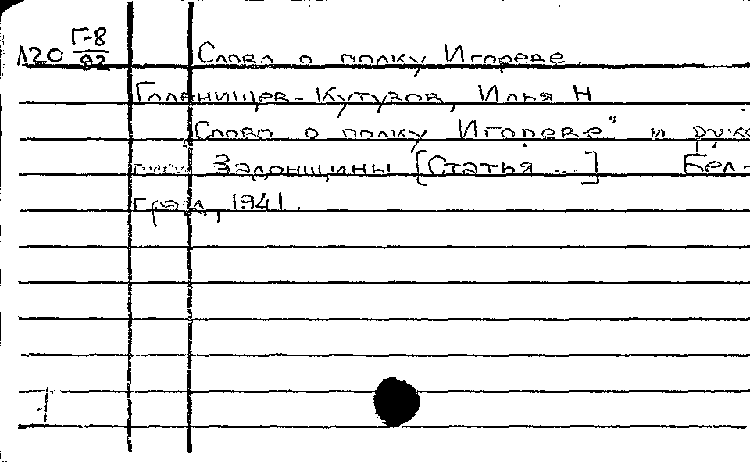 Л20 Г-8/92 Слово о полку Игореве
Голенищев-Кутузов, Илья Н
Слово о полку Игореве" и руко
писи Задонщины [Статья ...] Бел-
град, 1941.